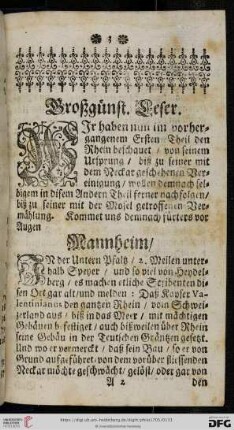 3
Großgünst. Leser.
WJr haben nun im vorher-
gangenem Ersten Theil den
Rhein beschauet / von seinem
Ursprung / biß zu seiner mit
dem Neckar geschehenen Ver-
einigung / wollen demnach sel-
bigem in disem Andern Theil ferner nachfolgen /
biß zu seiner mit der Mosel getroffenen Ver-
mählung. Kommet uns demnach
vor
Augen
Mannheim /
JN der Untern Pfaltz / 2. Meilen unter-
halb Speyer / und so viel von Heydel-
berg / es machen etliche Scribenten di-
sen Ort gar alt / und melden : Daß Kayser Va-
lentinianus den gantzen Rhein / vom Schwei-
tzerland aus / biß in das Meer / mit mächtigen
Gebäuen befestiget / auch bißweilen über Rhein
seine Gebäu in der Teutschen Gräntzen gesetzt.
Und wo er vermerckt / daß sein Bau / so er von
Grund auf geführet / von dem vorüber fliessenden
Neckar möchte geschwächt / gelöst / oder gar von
A 2 den
https://digi.ub.uni-heidelberg.de/diglit/
Universitätsbibliothek Heidelberg
gefördert durch
DFG